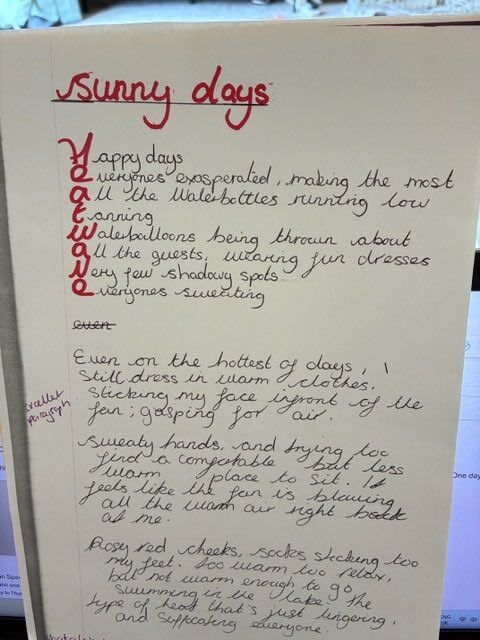 Sunny days
Happy days
everyones exosperated, making the most
all the Waterbottles running low
tanning
waterballoons being thrown about
all the guests, wearing fun dresses
Very few shadowy spots
everyones sweating
even
Even on the hottest of days, I
still dress in warm clothes.
Sticking my face infront of the
fan; gasping for air.
paragraph
Sweaty hands, and trying too
find a comfortable but less
warm place to sit. It
feels like the fan is blowing
all the warm air right back
at me.
Rosy red, cheeks, socks sticking too
my feet. too warm too relax,
but not warm enough to go
swimming in the lake. The
type of heat that's just lingering,
and suffocating everyone.
One day